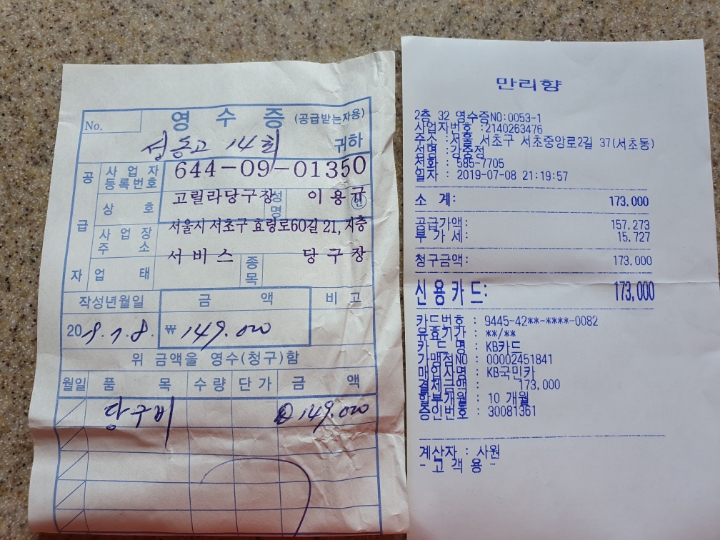 No.
영 수 증 (공급받는자용)
성동고 14회 귀하
공 급 자
사업자 등록번호 644-09-01350
상 호 고릴라당구장 성명 이용규 ㊞
사업장 주소 서울시 서초구 효령로60길 21, 지층
업 태 서비스 종목 당구장
작성년월일 금 액 비 고
2019. 7. 8. ₩ 149,000
위 금액을 영수(청구)함
월일 품 목 수량 단가 금 액
당구비 ₩149,000
만리향
2층 32 영수증NO:0053-1
사업자번호 : 2140263476
주소 : 서울 서초구 서초중앙로2길 37(서초동)
성명 : 강중정
전화 : 585-7705
일자 : 2019-07-08 21:19:57
소 계: 173,000
공급가액: 157,273
부 가 세: 15,727
청구금액: 173,000
신용카드: 173,000
카드번호 : 9445-42**-****-0082
유효기간 : **/**
카 드 명 : KB카드
가맹점NO : 00002451841
매입사명 : KB국민카
결제금액 : 173,000
할부개월 : 10 개월
승인번호 : 30081361
계산자 : 사원
- 고 객 용 -